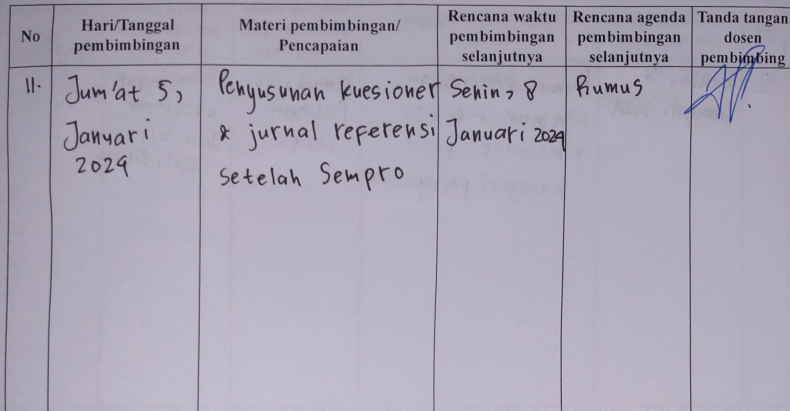 No
Hari/Tanggal
pembimbingan
Materi pembimbingan/
Pencapaian
Rencana waktu
pembimbingan
selanjutnya
Rencana agenda
pembimbingan
selanjutnya
Tanda tangan
dosen
pembimbing
11.
Jum'at 5,
Januari
2024
Penyusunan kuesioner
& jurnal referensi
setelah Sempro
Senin, 8
Januari 2024
Rumus